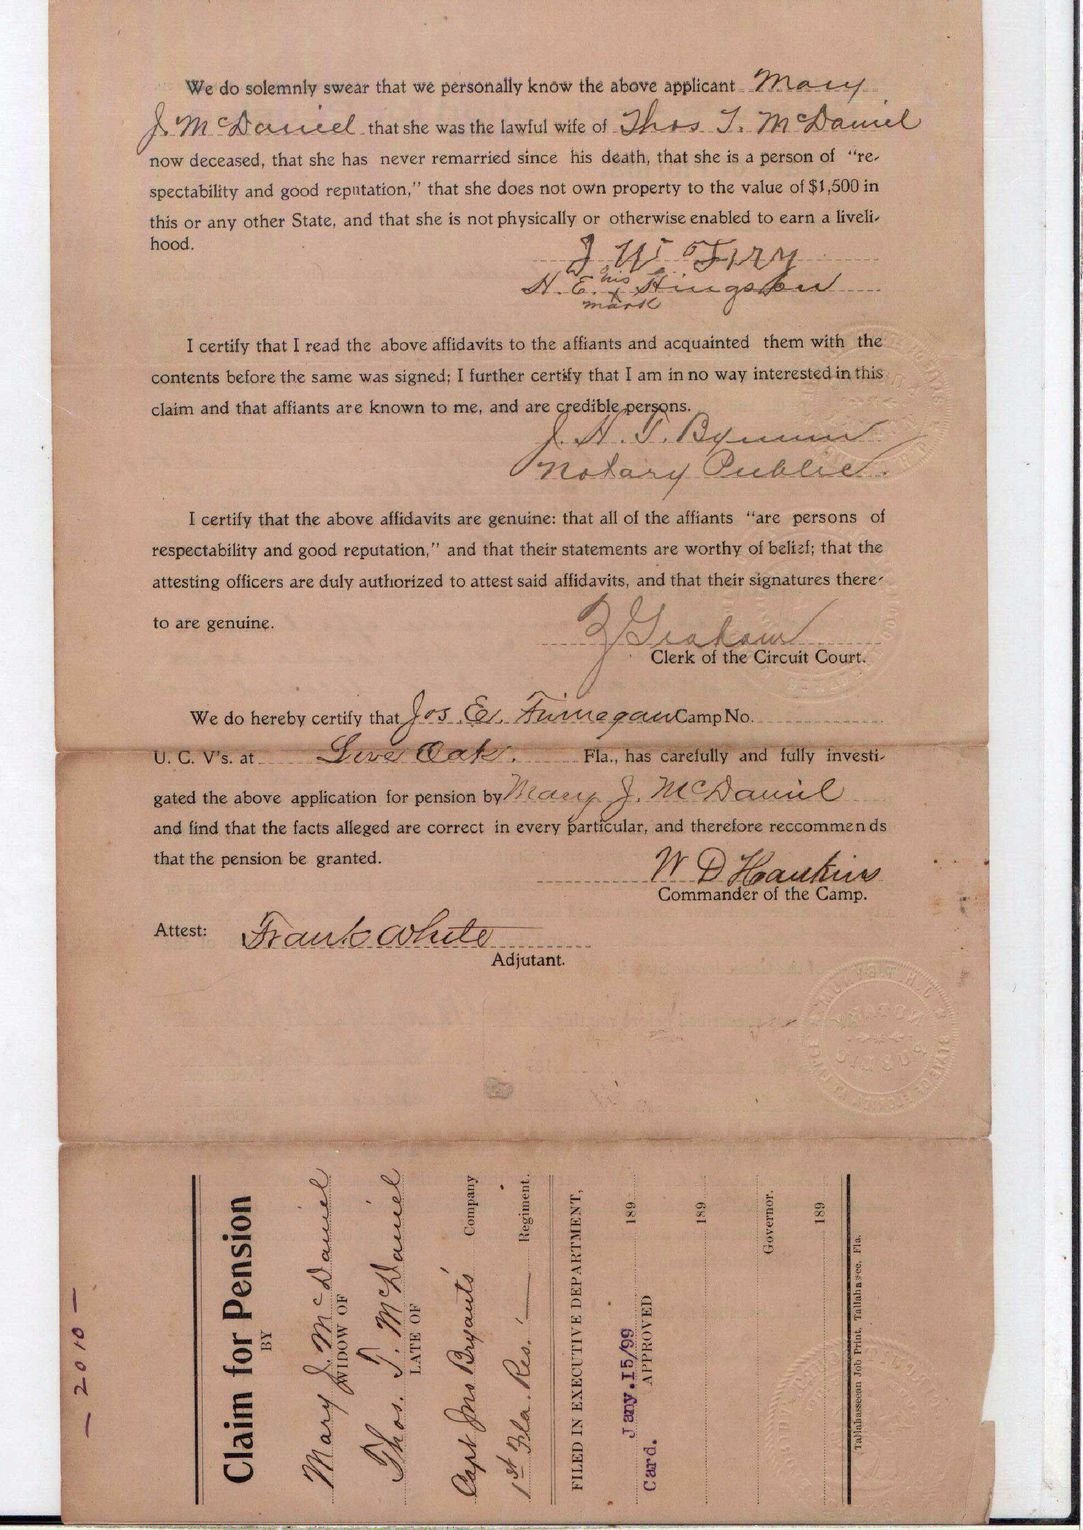 We do solemnly swear that we personally know the above applicant Mary
J. McDaniel that she was the lawful wife of Thos T. McDaniel
now deceased, that she has never remarried since his death, that she is a person of "re-
spectability and good reputation," that she does not own property to the value of $1,500 in
this or any other State, and that she is not physically or otherwise enabled to earn a liveli-
hood.
J W
H. E. his x mark
I certify that I read the above affidavits to the affiants and acquainted them with the
contents before the same was signed; I further certify that I am in no way interested in this
claim and that affiants are known to me, and are credible persons.
J. H. T. Bynum
Notary Public.
I certify that the above affidavits are genuine: that all of the affiants "are persons of
respectability and good reputation," and that their statements are worthy of belief; that the
attesting officers are duly authorized to attest said affidavits, and that their signatures there-
to are genuine.
Graham
Clerk of the Circuit Court.
We do hereby certify that Jos. E. Finnegan Camp No.
U. C. V's. at Live Oak. Fla., has carefully and fully investi-
gated the above application for pension by Mary J. McDaniel
and find that the facts alleged are correct in every particular, and therefore reccommends
that the pension be granted.
W D Hankins
Commander of the Camp.
Attest: Frank White
Adjutant.
— 2010 —
Claim for Pension
BY
Mary J. McDaniel
WIDOW OF
Thos. T. McDaniel
LATE OF
Capt Jno Bryants' Company
1st Fla. Res. Regiment.
FILED IN EXECUTIVE DEPARTMENT,
Jany.15/99 189
Card. APPROVED
189
Governor.
189
Tallahasseean Job Print, Tallahassee, Fla.